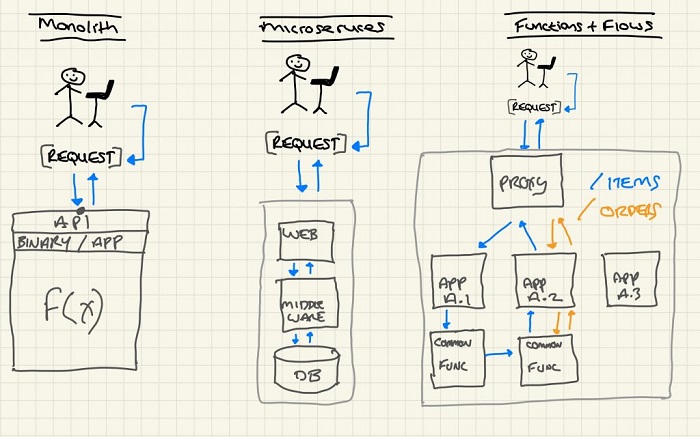 Monolith
[REQUEST]
API
BINARY / APP
F(x)
Microservices
[REQUEST]
WEB
MIDDLE
WARE
DB
Functions + Flows
[REQUEST]
PROXY
/ITEMS
/ORDERS
APP
A.1
APP
A.2
APP
A.3
COMMON
FUNC
COMMON
FUNC